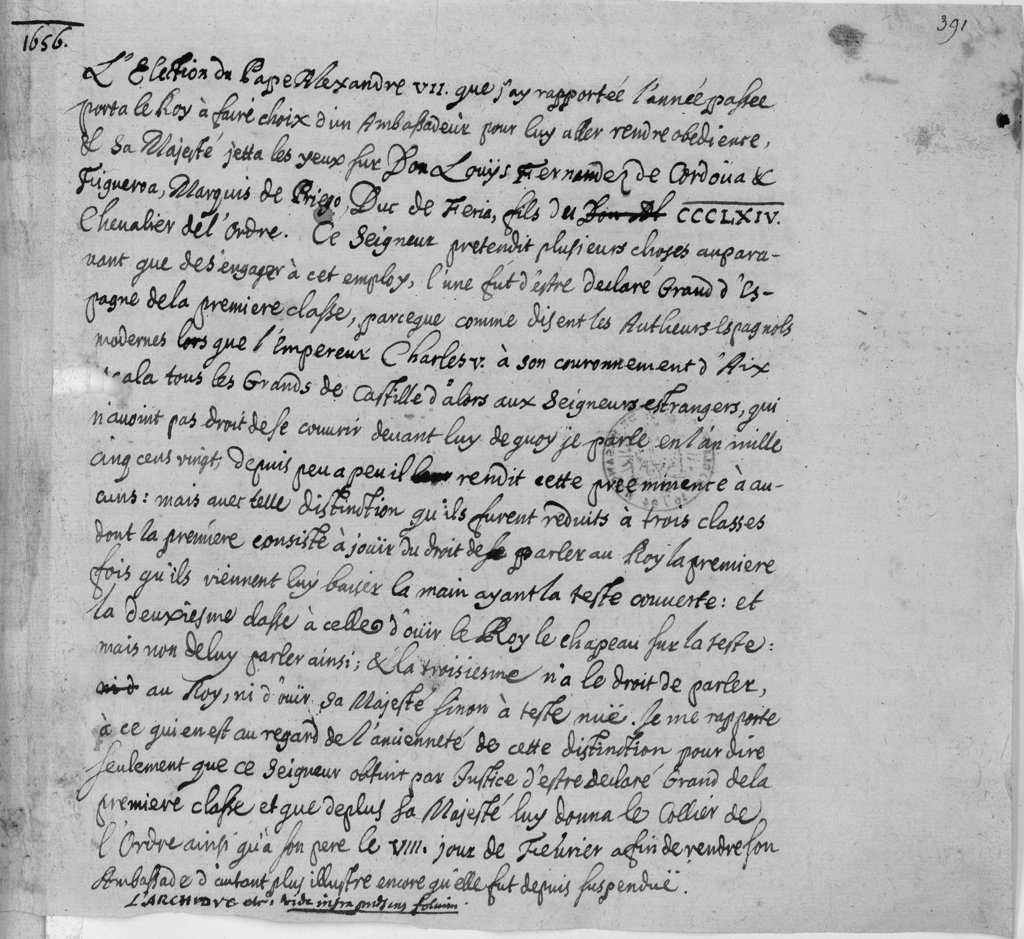 391
1656.
L'Election du Pape Alexandre VII. que j'ay rapportée l'année passée
porta le Roy à faire choix d'un Ambassadeur pour luy aller rendre obedience,
& sa Majesté jetta les yeux sur Don Louÿs Fernandez de Cordoüa &
Figueroa, Marquis de Priego, Duc de Feria, fils du CCCLXIV.
Chevalier de l'Ordre. Ce Seigneur pretendit plusieurs choses aupara-
vant que de s'engager à cet employ, l'une fut d'éstre declaré Grand d'Es-
pagne de la premiere classe, parceque comme disent les Autheurs Espagnols
modernes lors que l'Empereur Charles V. à son couronnement d'Aix
tous les Grands de Castille d'alors aux Seigneurs estrangers, qui
n'avoint pas droit de se couurir deuant luy de quoy je parle en l'an mille
cinq cens vingt, depuis peu a peu il rendit cette preeminence à au-
cuns: mais avec telle distinction qu'ils furent reduits à trois classes
dont la premiére consiste à joüir du droit de parler au Roy la premiere
fois qu'ils viennent luy baiser la main ayant la teste couverte: et
la deuxiesme classe à celle d'oüir le Roy le chapeau sur la teste:
mais non de luy parler ainsi; & la troisiesme n'a le droit de parler,
ni d au Roy, ni d'oüir sa Majesté sinon à teste nuë. Je me rapporte
à ce qui en est au regard de l'ancienneté de cette distinction pour dire
seulement que ce Seigneur obtint par Justice d'estre declaré Grand de la
premiere classe et que de plus sa Majesté luy donna le Collier de
l'Ordre ainsi qu'à son pere le VIII. jour de Feburier afin de rendre son
Ambassade d'autant plus illustre encore qu'elle fut depuis suspenduë.
L'ARCHIDVC etc. vide infra folium.